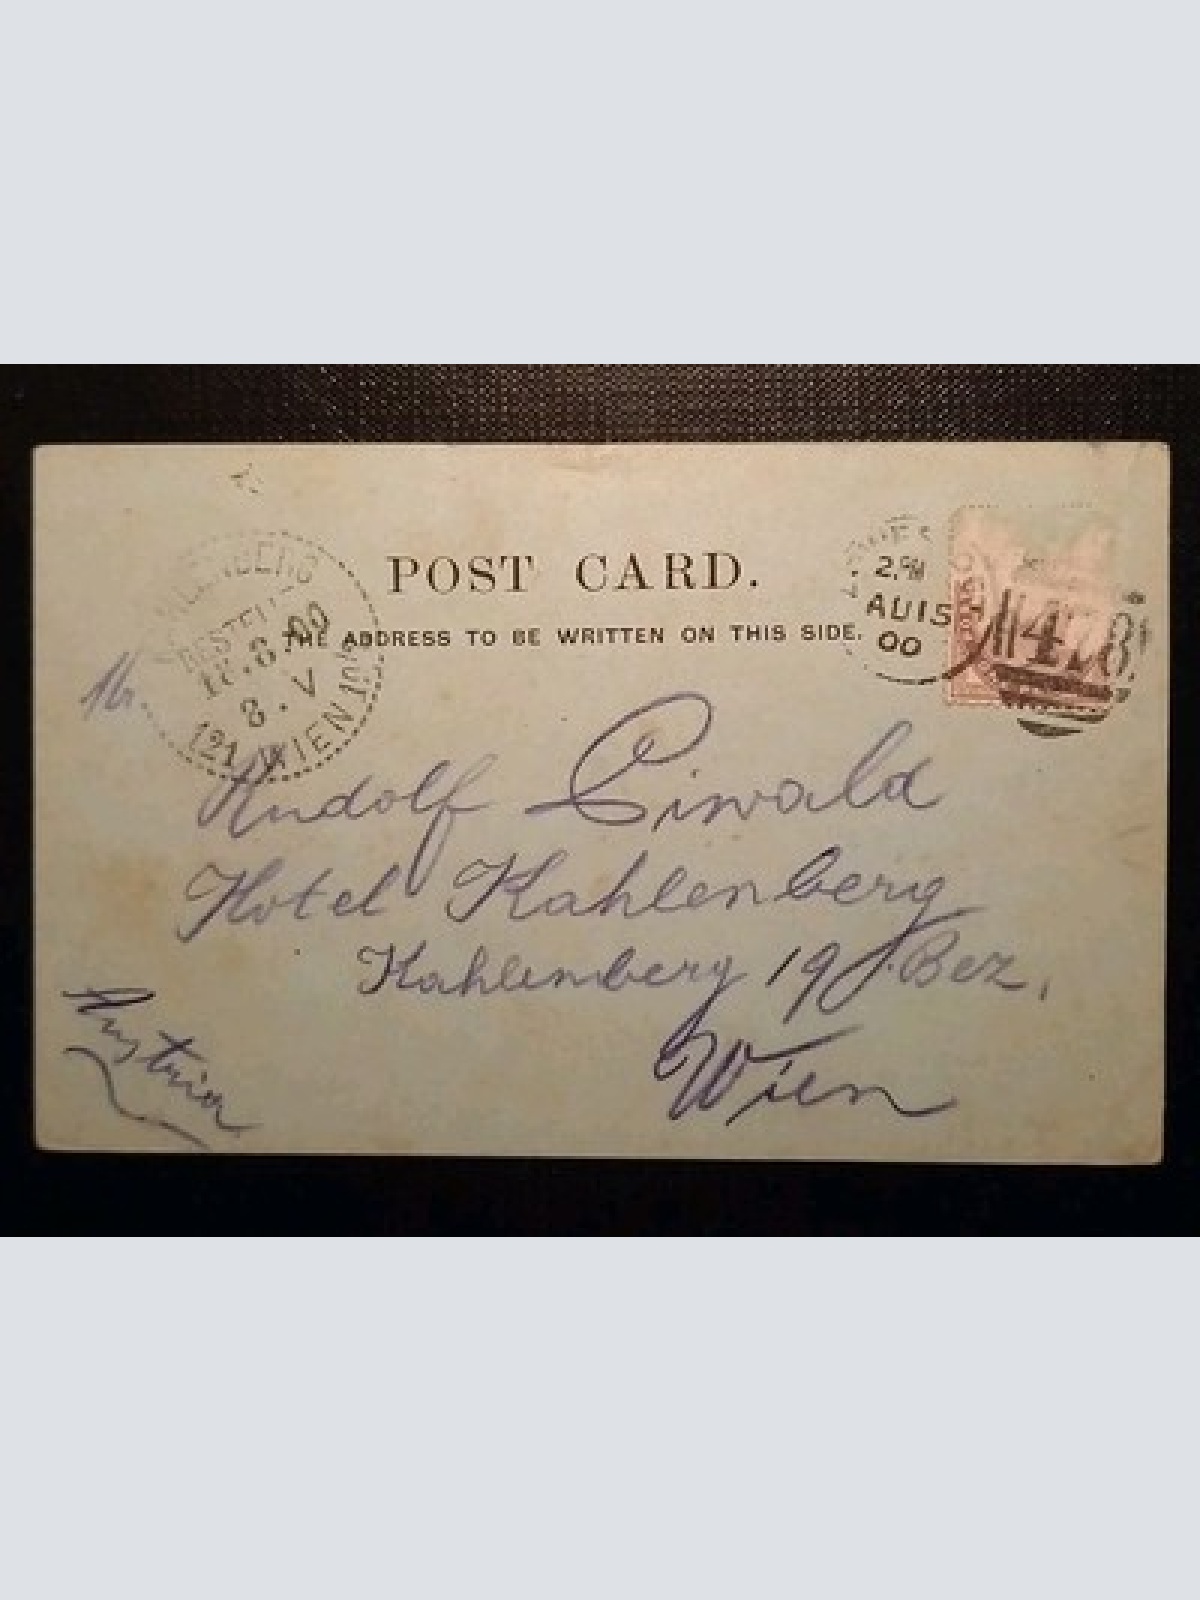 POST CARD.
THE ADDRESS TO BE WRITTEN ON THIS SIDE.
BESTELLT
8.V
121 WIEN
2.PM
AU 15
00
478
Mr.
Rudolf
Hotel Kahlenberg
Kahlenberg 19. Bez,
Wien
Austria